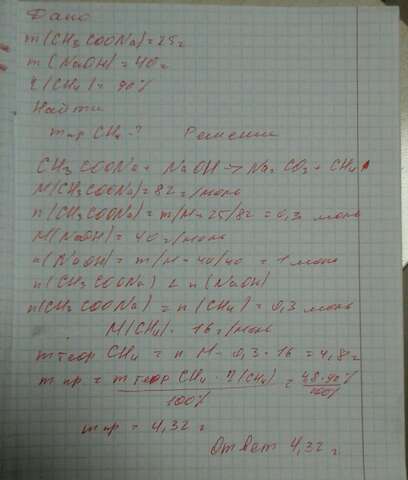 Дано
m(CH3COONa)=25г
m(NaOH)=40г
η(CH4)= 90%
Найти
mпр CH4-? Решение
CH3COONa+ NaOH->Na2CO3+CH4↑
M(CH3COONa)=82г/моль
n(CH3COONa)=m/M=25/82=0,3 моль
M(NaOH)= 40г/моль
n(NaOH)=m/M=40/40 = 1 моль
n(CH3COONa) < n(NaOH)
n(CH3COONa)=n(CH4)=0,3 моль
M(CH4)= 16г/моль
mтеор CH4 = n M=0,3·16=4,8г
mпр = mтеор CH4·η(CH4) = 4,8·90%
100% 100%
mпр = 4,32г
Ответ 4,32г